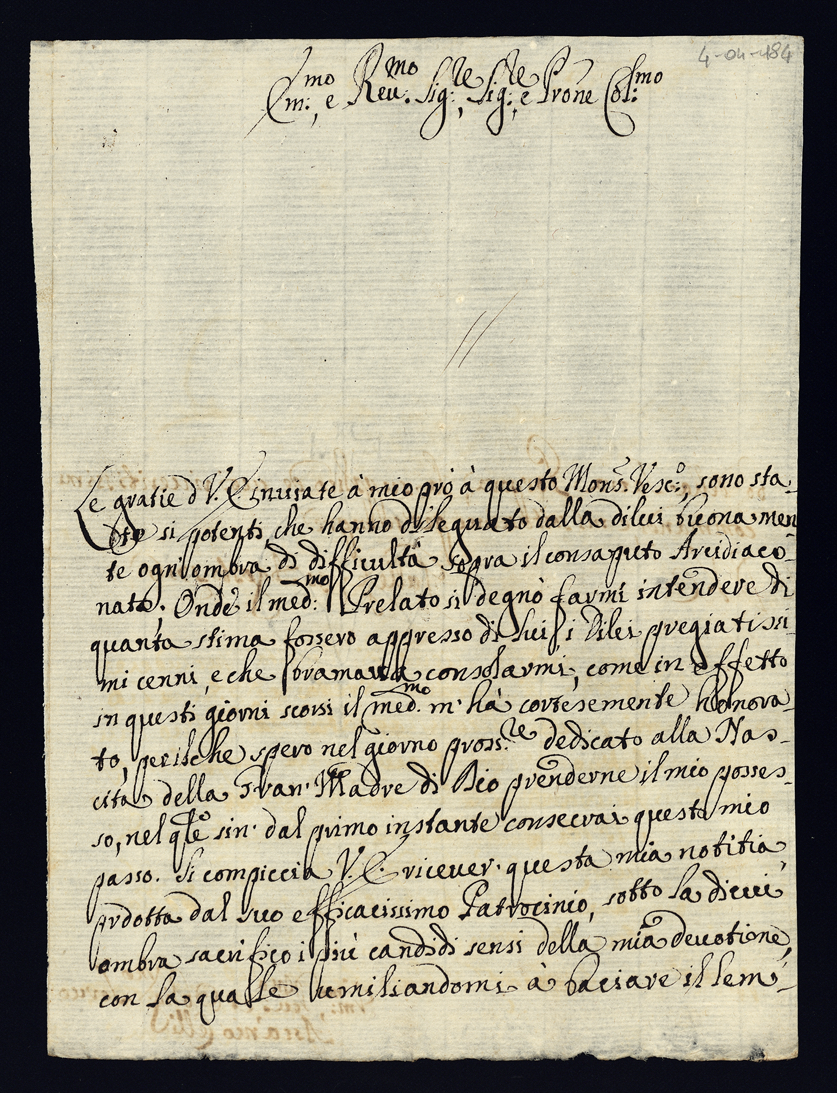 4-04-184
Em:mo, e Reu:mo Sig:re, Sig:re, e Prone Col:mo
Le gratie d V. E. inuiate à mio prò à questo Mons. Vesc:o, sono sta-
te si potenti, che hanno dileguato dalla dilui buona men
te ogni ombra di difficultà sopra il consaputo Arcidiaco-
nato; Onde il med:mo Prelato si degnò farmi intendere di
quanta stima fossero appresso di Lui i Dilei pregiatissi-
mi cenni, e che bramava consolarmi, come in effetto
in questi giorni scorsi il med:mo m'hà cortesemente honora-
to, perilche spero nel giorno pross:re dedicato alla Nas-
cita della Gran' Madre di Dio prenderne il mio posses-
so, nel qle sin' dal primo instante consecrai questo mio
passo. Si compiccia V. E. riceuer' questa mia notitia
prdotta dal suo efficacissimo Patrocinio, sotto la dicui
ombra sacrifico i più candidi sensi della mia deuotione,
con la qualle umiliandomi à baciare il lem-